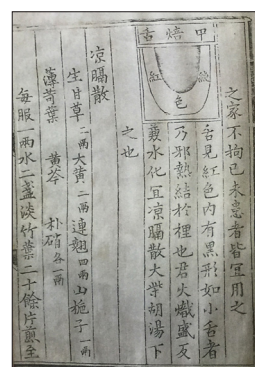 之家不拘已未患者皆宜用之
甲焙舌
微
紅
色
舌見紅色內有黑形如小舌者
乃邪熱結於裡也君火熾盛反
兼水化宜凉膈散大柴胡湯下
之也
凉膈散
生甘草二兩大黃二兩連翹四兩山梔子一兩
薄荷葉 黃芩 朴硝各一兩
每服一兩水二盞淡竹葉二十餘片煎至